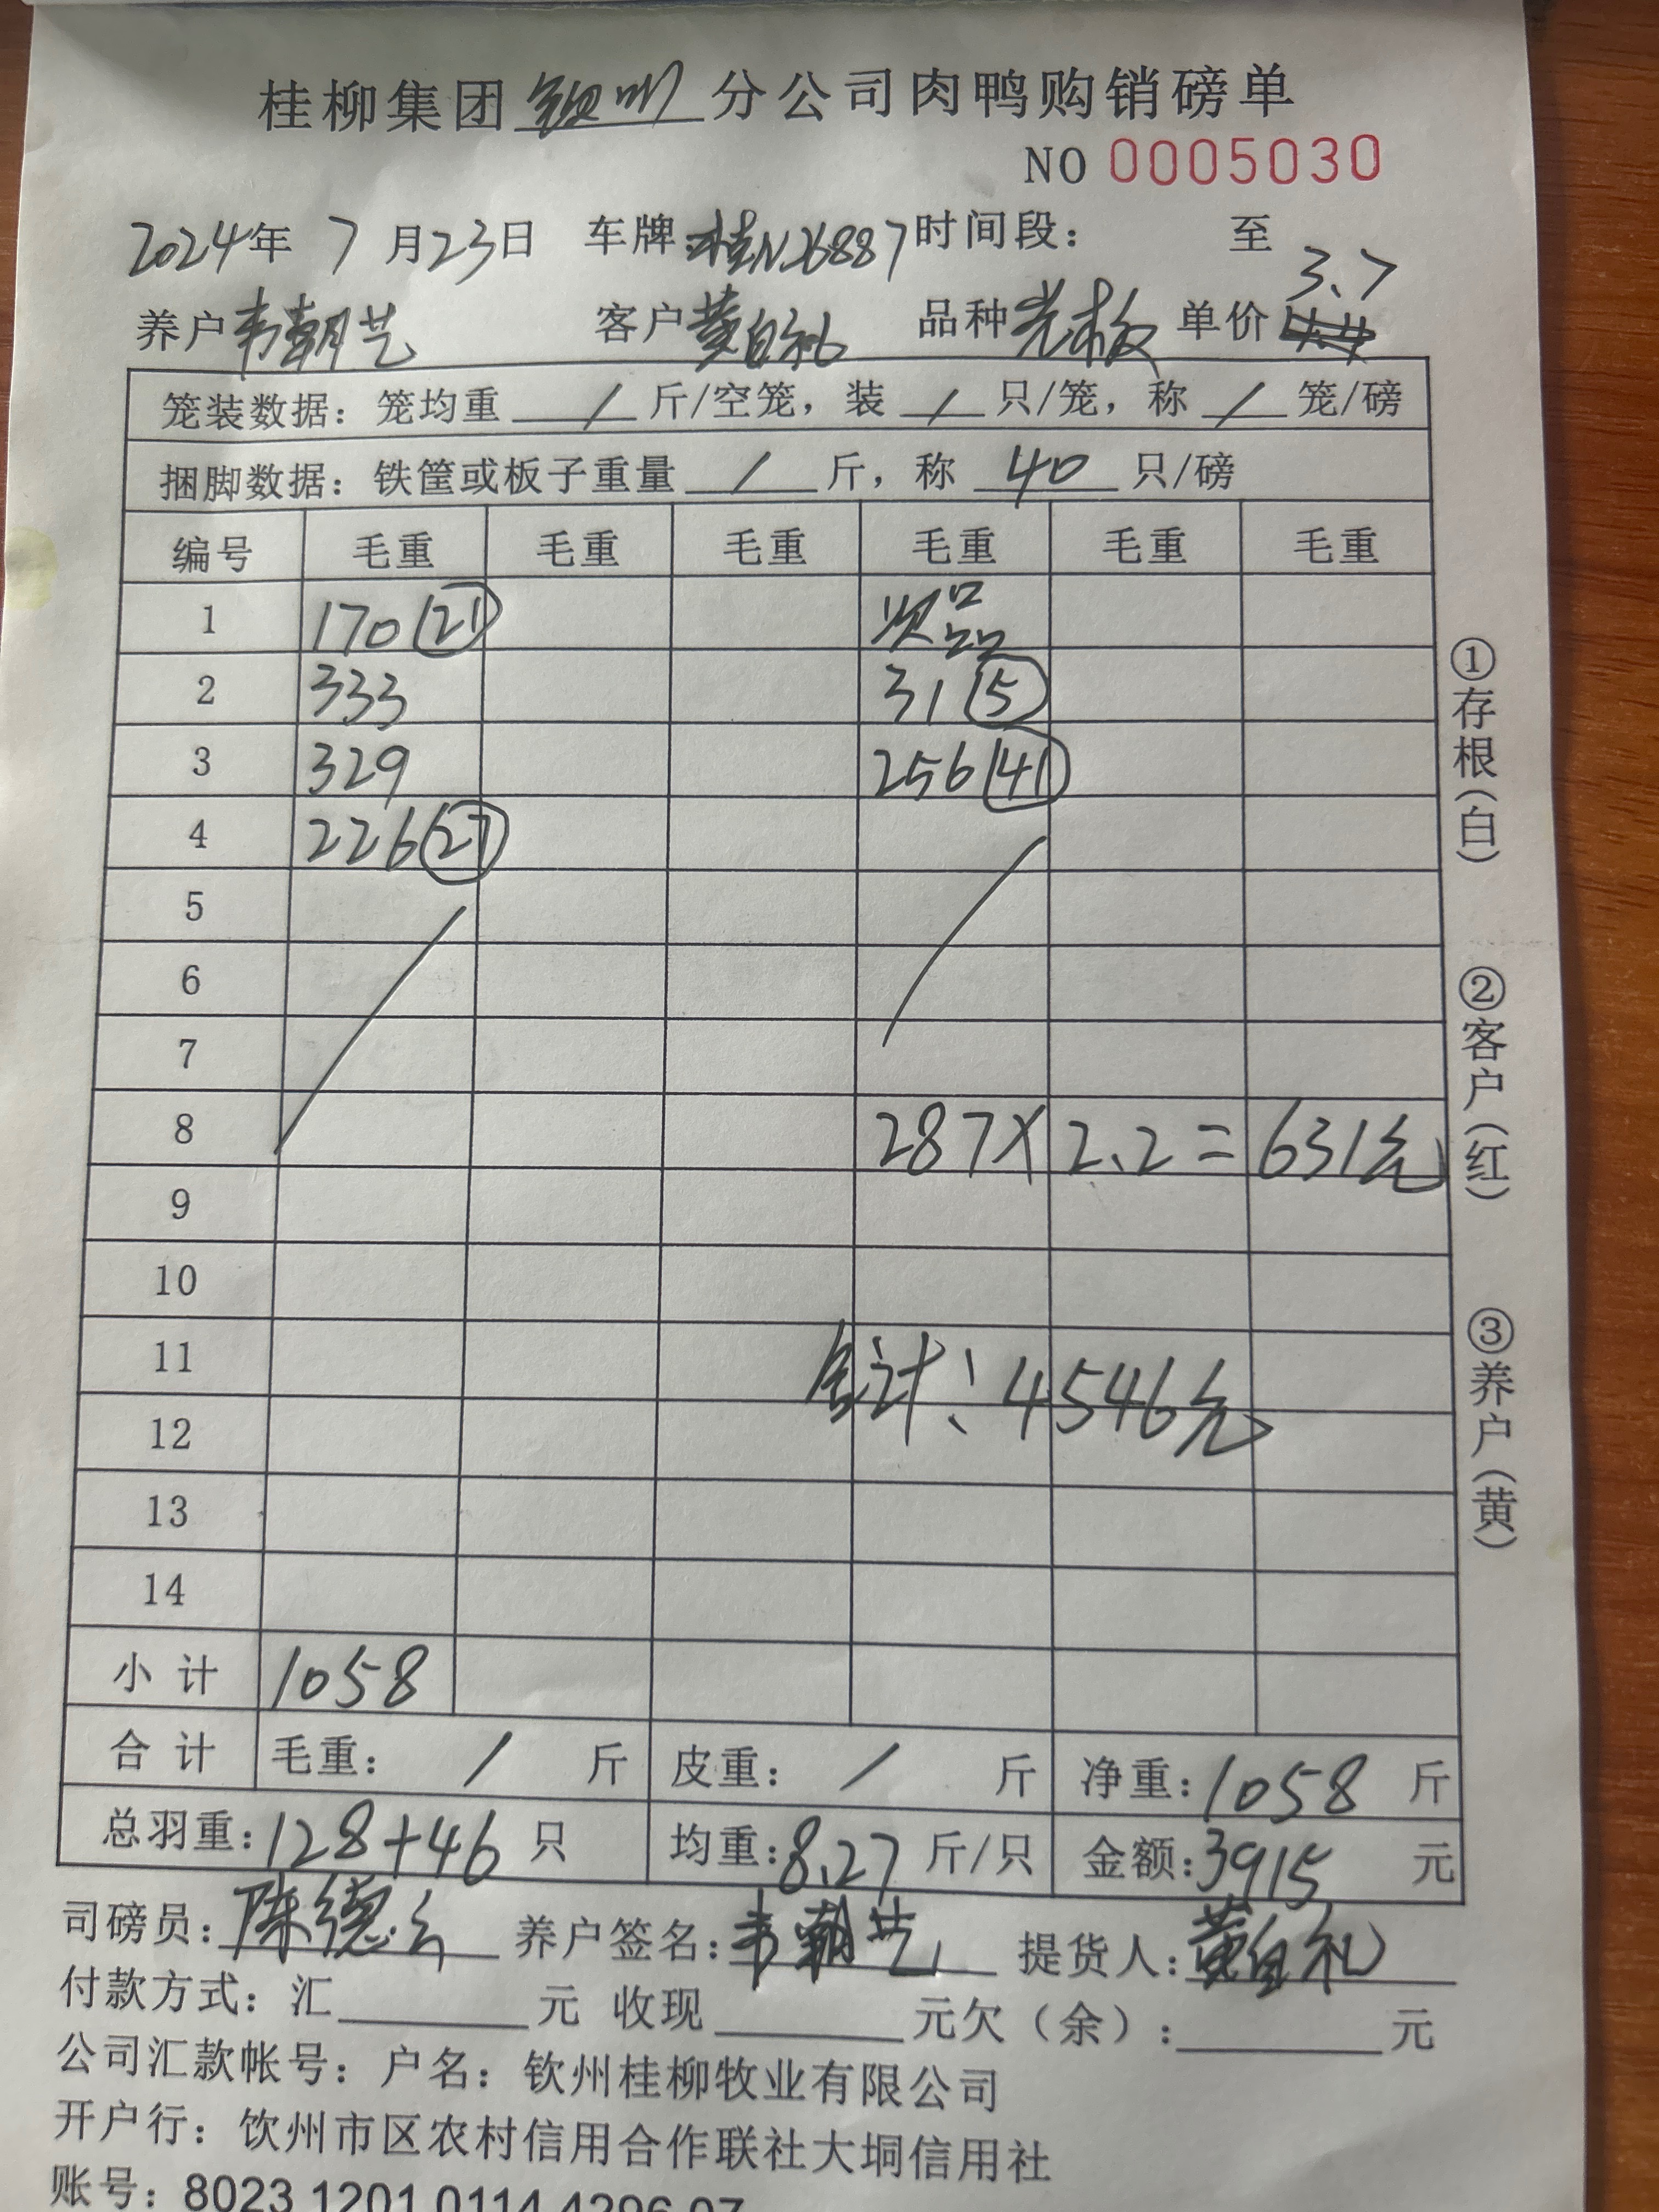 桂柳集团钦州分公司肉鸭购销磅单
NO 0005030
2024年 7 月23日 车牌:桂N26887 时间段: 至
3.7
养户韦朝艺 客户黄自礼 品种光板 单价
笼装数据: 笼均重 / 斤/空笼, 装 / 只/笼, 称 / 笼/磅
捆脚数据: 铁筐或板子重量 / 斤, 称 40 只/磅
编号 毛重 毛重 毛重 毛重 毛重 毛重
1 170(21) 次品
2 333 31(5)
3 329 256(41)
4 226(27)
5
6
7
8 287×2.2=631元
9
10
11
合计:4546元
12
13
14
小计 1058
合计 毛重: / 斤 皮重: / 斤 净重:1058 斤
总羽重:128+46 只 均重:8.27 斤/只 金额:3915 元
司磅员:陈德 养户签名:韦朝艺 提货人:黄自礼
付款方式: 汇 元 收现 元欠(余): 元
公司汇款帐号: 户名: 钦州桂柳牧业有限公司
开户行: 钦州市区农村信用合作联社大垌信用社
账号: 8023 1201 0114 4296 07
①存根(白)
②客户(红)
③养户(黄)